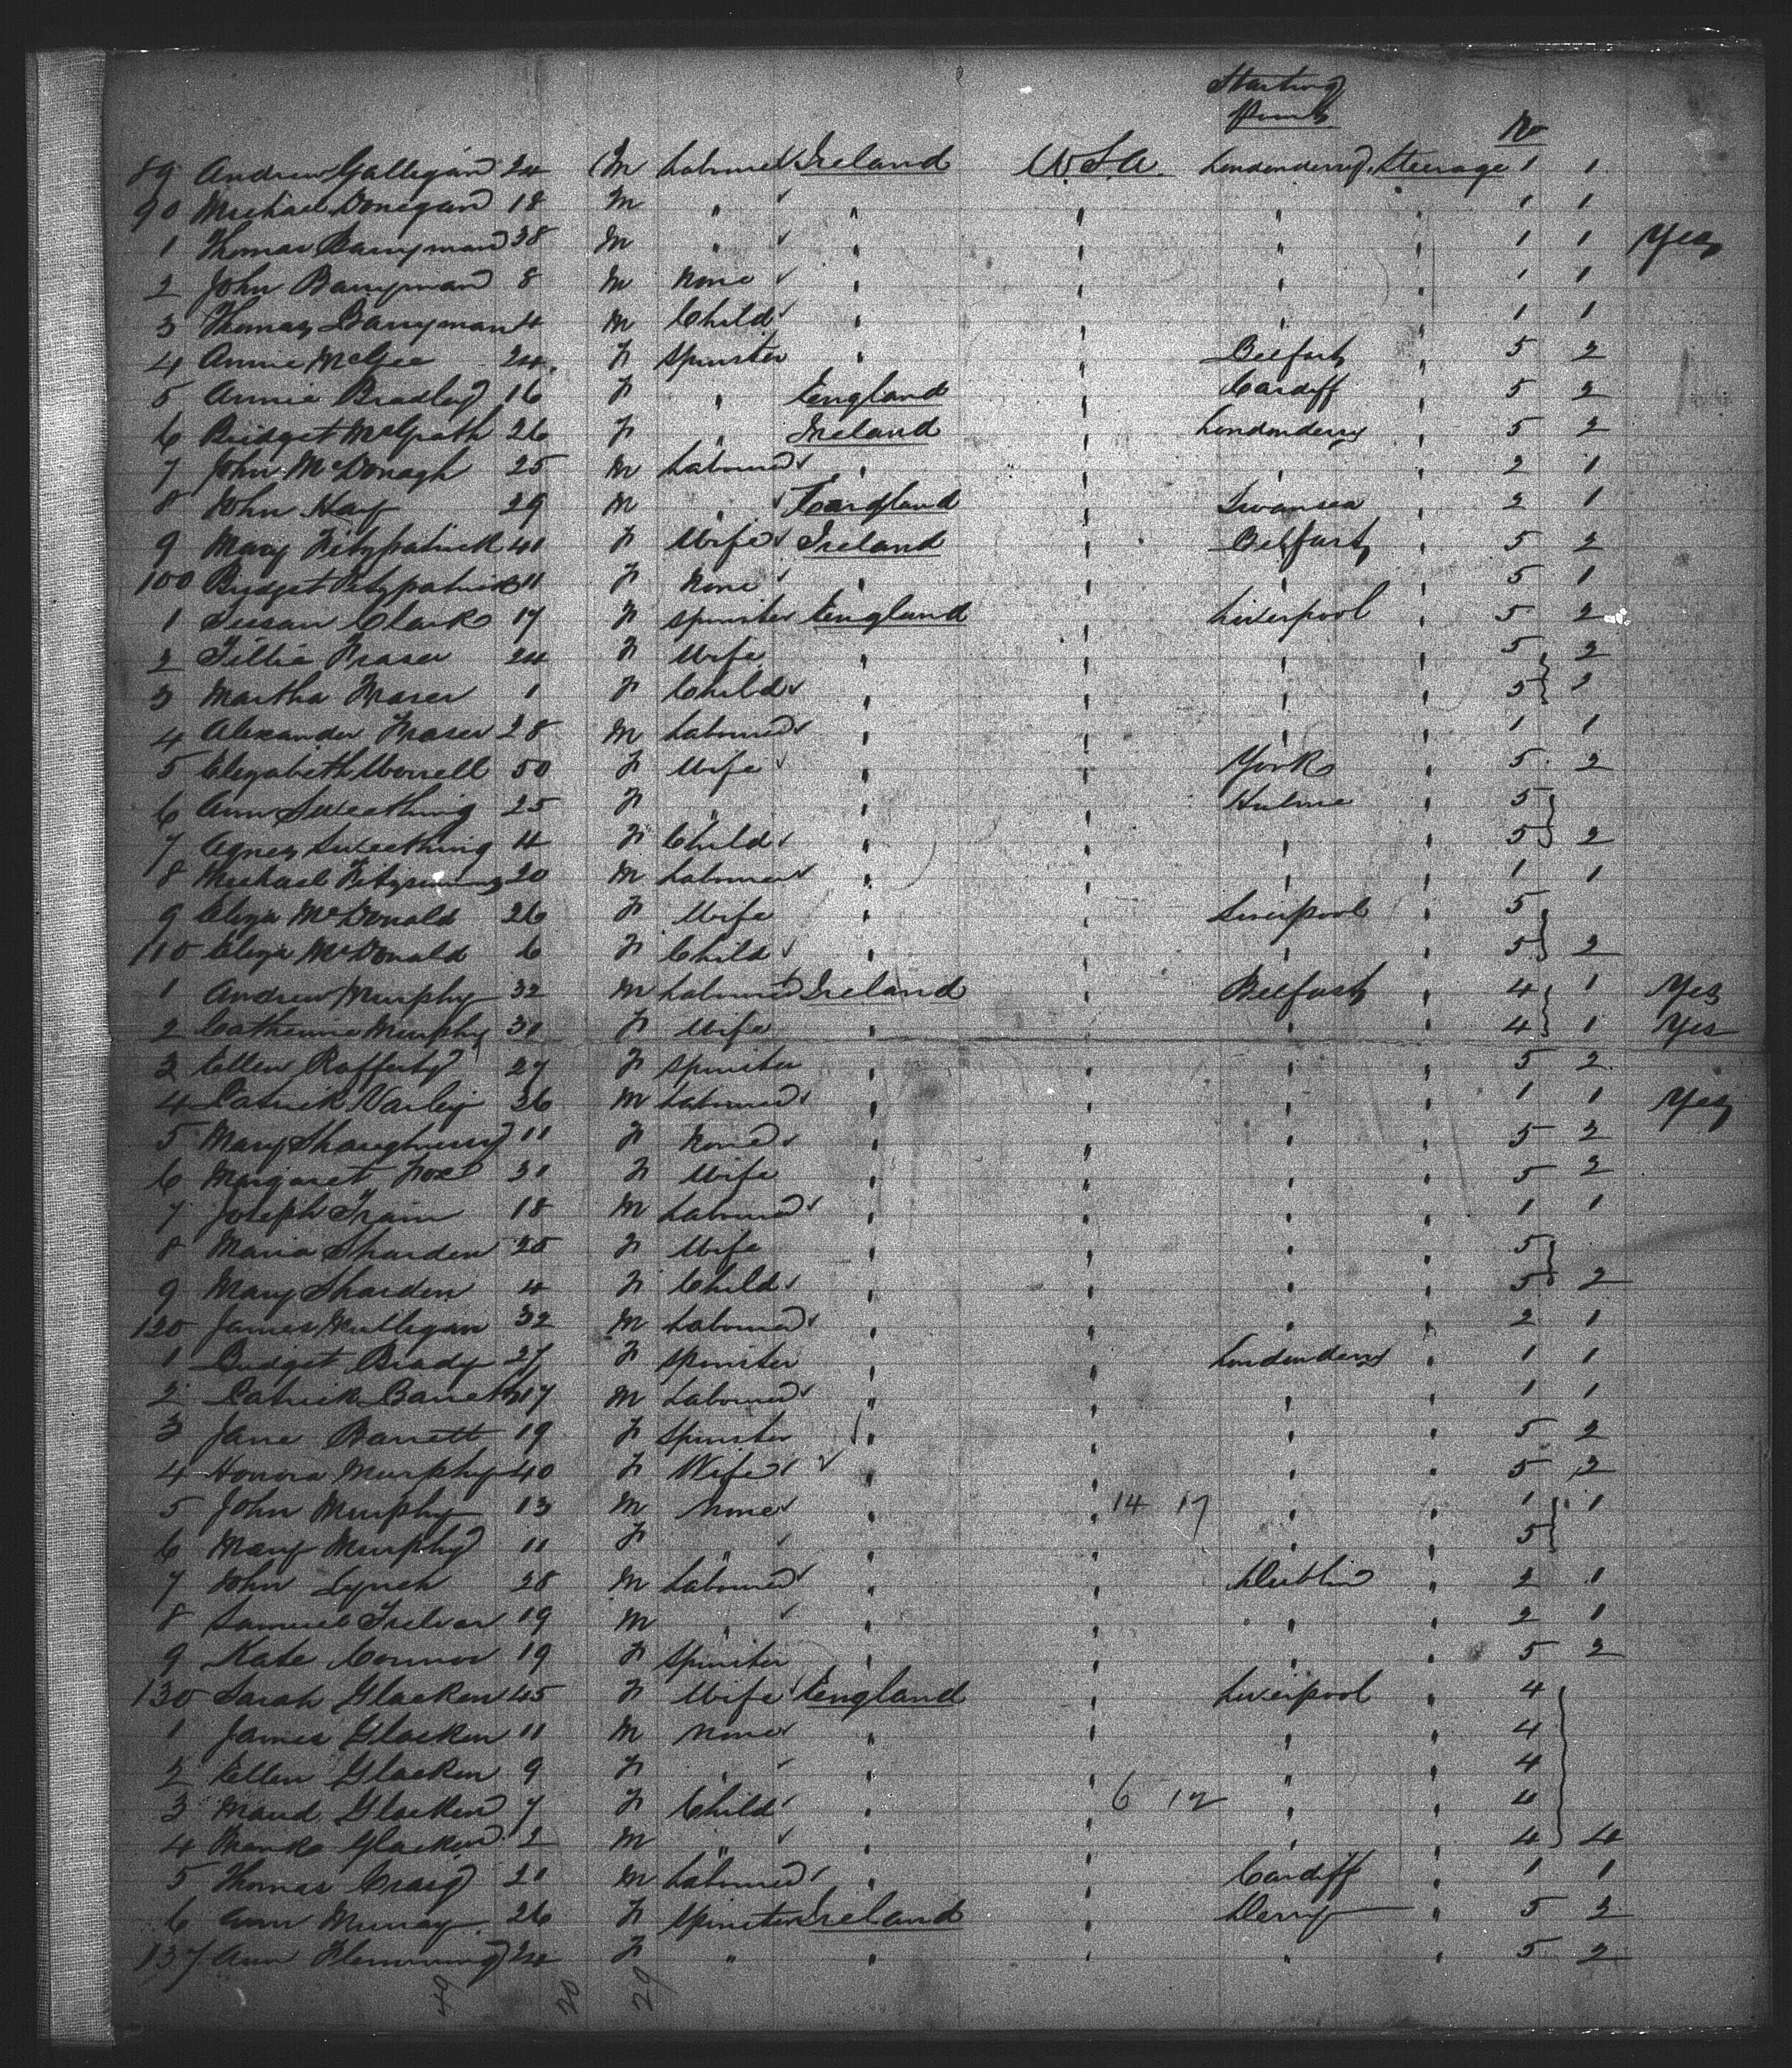 Starting
Point
No
89 Andrew Gallegan 24 M Labourer Ireland U.S.A. Londonderry Steerage 1 1
90 Michael Donegan 18 M " " " " " 1 1
1 Thomas Barryman 38 M " " " " " 1 1 Yes
2 John Barryman 8 M None " " " " 1 1
3 Thomas Barryman 4 M Child " " " " 1 1
4 Annie McGee 24 F Spinster " " Belfast " 5 2
5 Annie Bradley 16 F " England " Cardiff " 5 2
6 Bridget McGrath 26 F " Ireland " Londonderry " 5 2
7 John McDonagh 25 M Labourer " " " " 2 1
8 John Hay 29 M " England " Swansea " 2 1
9 Mary Fitzpatrick 41 F Wife Ireland " Belfast " 5 2
100 Bridget Fitzpatrick 11 F None " " " " 5 1
1 Susan Clark 17 F Spinster England " Liverpool " 5 2
2 Tillie Fraser 24 F Wife " " " " 5 2
3 Martha Fraser 1 F Child " " " " 5 1
4 Alexander Fraser 28 M Labourer " " " " 1 1
5 Elizabeth Worrell 50 F Wife " " York " 5 2
6 Ann Sweething 25 F " " " Hulme " 5
7 Agnes Sweething 4 F Child " " " " 5 2
8 Michael Fitzsimmons 20 M Labourer " " " " 1 1
9 Eliza McDonald 26 F Wife " " Liverpool " 5
110 Eliza McDonald 6 F Child " " " " 5 2
1 Andrew Murphy 32 M Labourer Ireland " Belfast " 4 1 Yes
2 Catherine Murphy 31 F Wife " " " " 4 1 Yes
3 Ellen Rafferty 27 F Spinster " " " " 5 2
4 Patrick Varley 36 M Labourer " " " " 1 1 Yes
5 Mary Shaughnessy 11 F None " " " " 5 2
6 Margaret Fox 31 F Wife " " " " 5 2
7 Joseph Train 18 M Labourer " " " " 1 1
8 Maria Sharden 25 F Wife " " " " 5
9 Mary Sharden 4 F Child " " " " 5 2
120 James Mulligan 32 M Labourer " " " " 2 1
1 Bridget Brady 27 F Spinster " " Londonderry " 1 1
2 Patrick Barrett 17 M Labourer " " " " 1 1
3 Jane Barrett 19 F Spinster " " " " 5 2
4 Honora Murphy 40 F Wife " " " " 5 2
5 John Murphy 13 M None " " 14 17 " " 1 1
6 Mary Murphy 11 F " " " " " 5
7 John Lynch 28 M Labourer " " Dublin " 2 1
8 Samuel 19 M " " " " " 2 1
9 Kate Connor 19 F Spinster " " " " 5 2
130 Sarah Glacken 45 F Wife England " Liverpool " 4
1 James Glacken 11 M None " " " " 4
2 Ellen Glacken 9 F " " " " " 4
3 Maud Glacken 7 F Child " " 6 12 " " 4
4 Frank Glacken 2 M " " " " " 4 4
5 Thomas Craig 21 M Labourer " " Cardiff " 1 1
6 Ann Murray 26 F Spinster Ireland " Derry " 5 2
137 Ann Flemming 24 F " " " " " 5 2
29